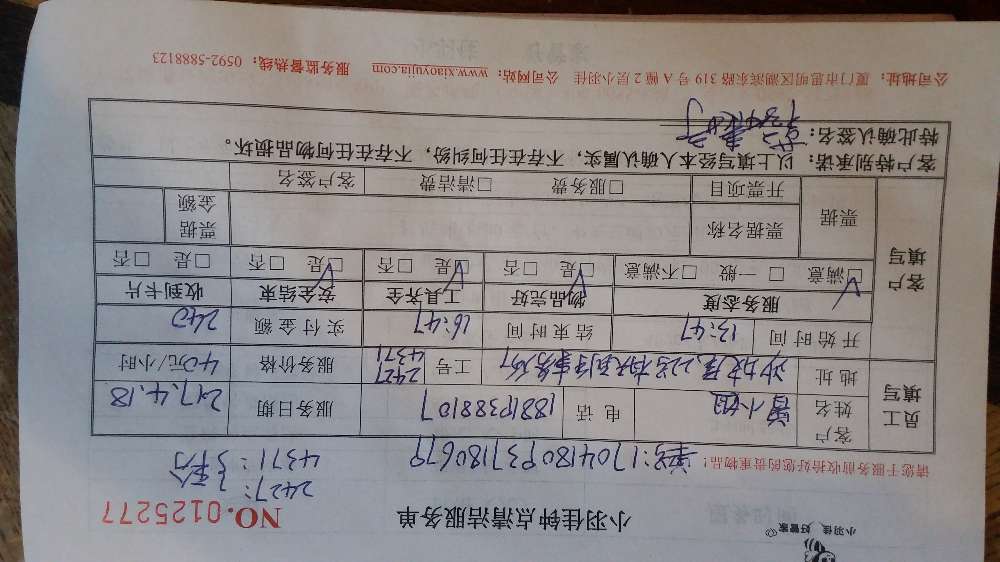 小羽佳, 好管家
小羽佳钟点清洁服务单
NO.0125277
2427:
4371:
请您于服务前收拾您的贵重物品!
单号:1704180937180679
员工填写
客户姓名 曾小姐 电话 18813388107 服务日期 2017.4.18
地址 工号 2427 4371 服务价格 40元/小时
开始时间 13:47 结束时间 16:47 实付金额 240
客户填写
服务态度 物品完好 工具齐全 安全结束 收到卡片
☑满意 □一般 □不满意 ☑是 □否 ☑是 □否 ☑是 □否 □是 □否
票据 票据名称 票据金额
开票项目 □服务费 □清洁费 客户签名
客户特别承诺: 以上填写经本人确认属实, 不存在任何纠纷, 不存在任何物品损坏。
特此确认签名:
公司地址: 厦门市思明区湖滨东路 319 号 A 幢 2 层小羽佳 公司网站: www.xiaoyujia.com 服务监督热线: 0592-5888123